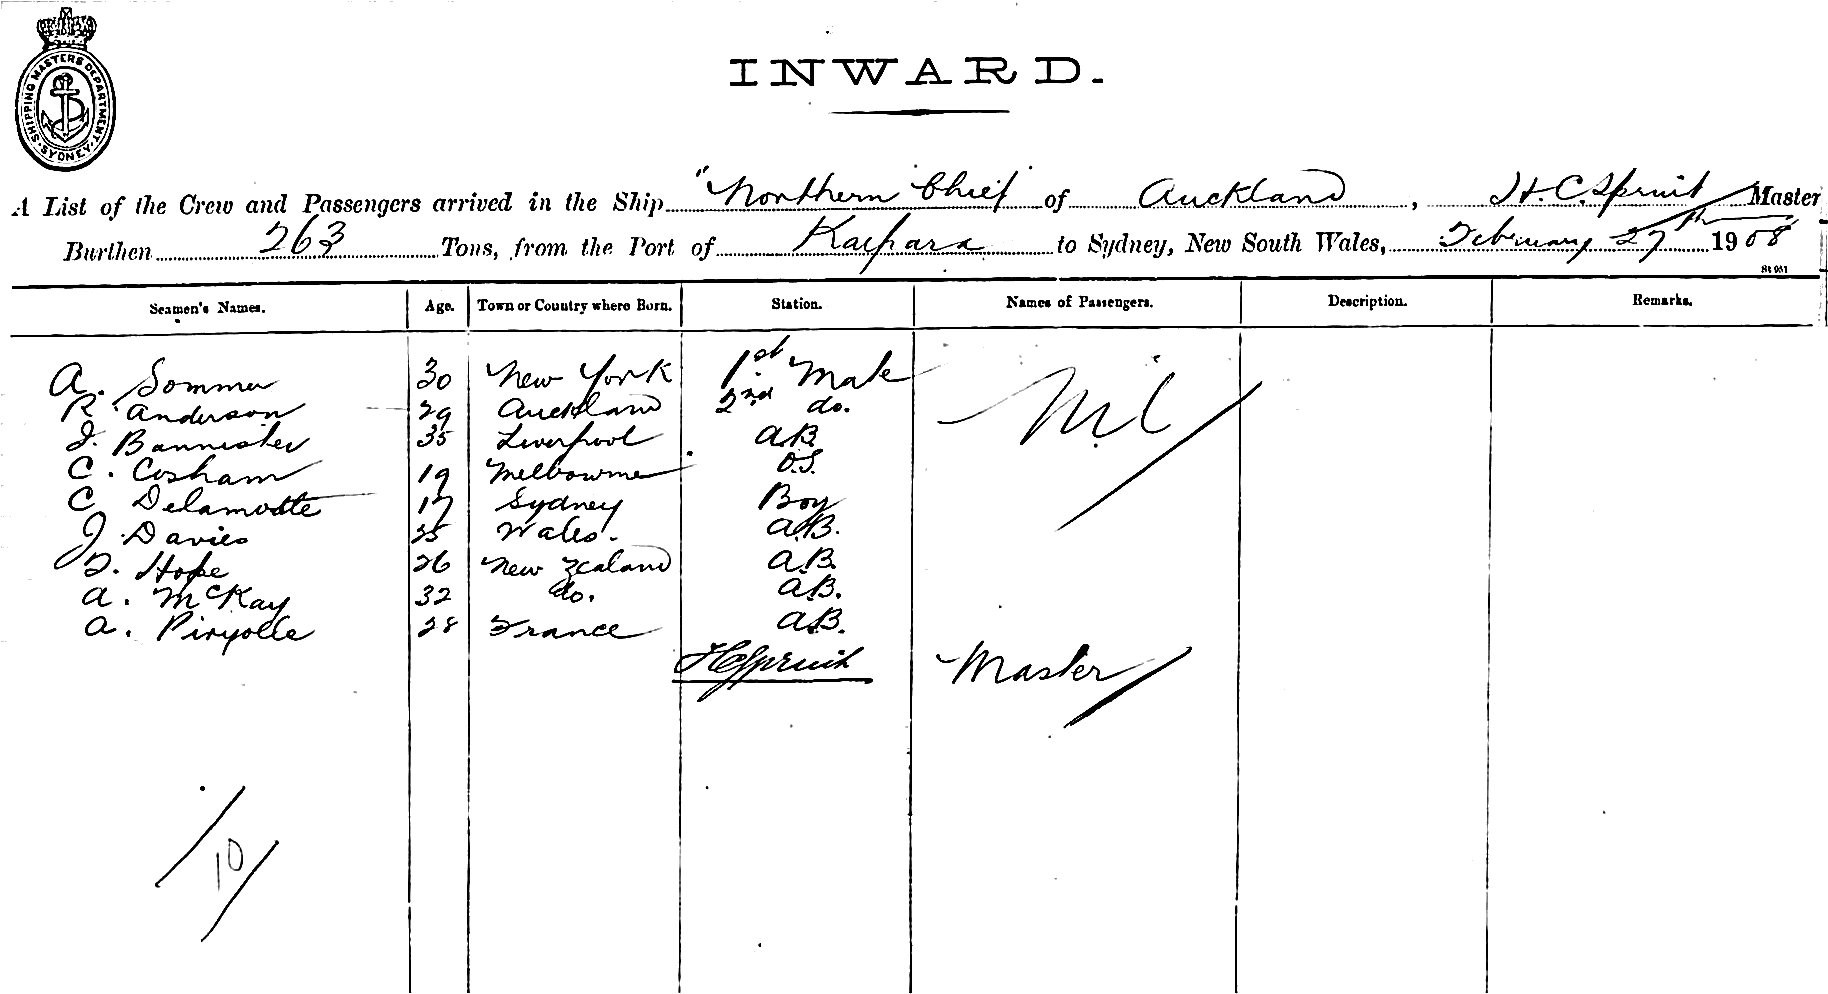 SHIPPING MASTERS DEPARTMENT. SYDNEY.
INWARD.
A List of the Crew and Passengers arrived in the Ship "Northern Chief" of Auckland, H. C. Spruit Master
Burthen 263 Tons, from the Port of Kaipara to Sydney, New South Wales, February 27th 1908
St 951
Seamen's Names. Age. Town or Country where Born. Station. Names of Passengers. Description. Remarks.
A. Sommer 30 New York 1st Mate Nil
R. Anderson 29 Auckland 2nd do.
J. Bannister 35 Liverpool A.B.
C. Cosham 19 Melbourne O.S.
C Delamotte 17 Sydney Boy
J. Davies 35 Wales. A.B.
T. Hope 26 New Zealand A.B.
A. McKay 32 do. A.B.
A. Piryolle 28 France A.B.
H C Spruit Master
10